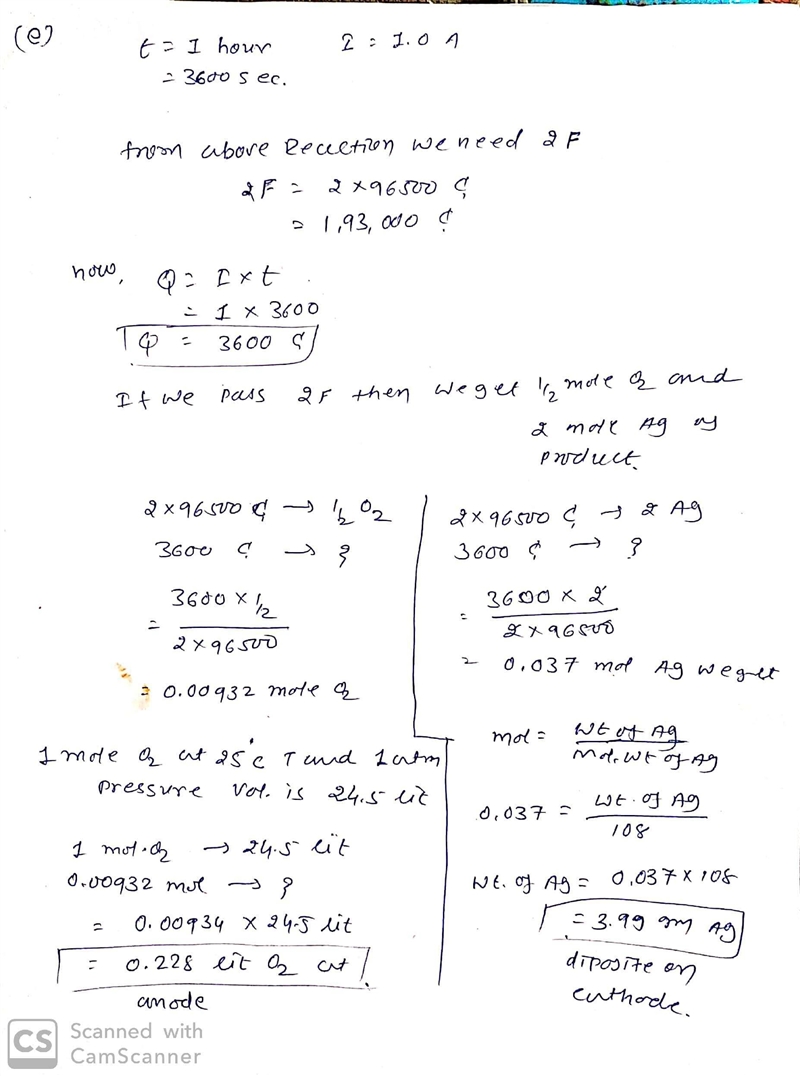 (e) t = 1 hour I = 1.0 A
= 3600 sec.
from above Recection we need 2F
2F = 2 × 96500 C
= 1,93,000 C
now, Q = I × t
= 1 × 3600
Q = 3600 C
If we pass 2F then we get 1/2 mole O2 and
2 mole Ag as
product.
2 × 96500 C → 1/2 O2
3600 C → ?
= 3600 × 1/2 / 2 × 96500
= 0.00932 mole O2
1 mole O2 at 25°C T and 1 atm
pressure vol. is 24.5 lit
1 mol.O2 → 24.5 lit
0.00932 mol → ?
= 0.00934 × 24.5 lit
= 0.228 lit O2 at
anode
2 × 96500 C → 2 Ag
3600 C → ?
= 3600 × 2 / 2 × 96500
= 0.037 mol Ag we get
mol = Wt of Ag / Mol. wt of Ag
0.037 = wt. of Ag / 108
Wt. of Ag = 0.037 × 108
= 3.99 gm Ag
diposite on
cuthode.
CS Scanned with
CamScanner